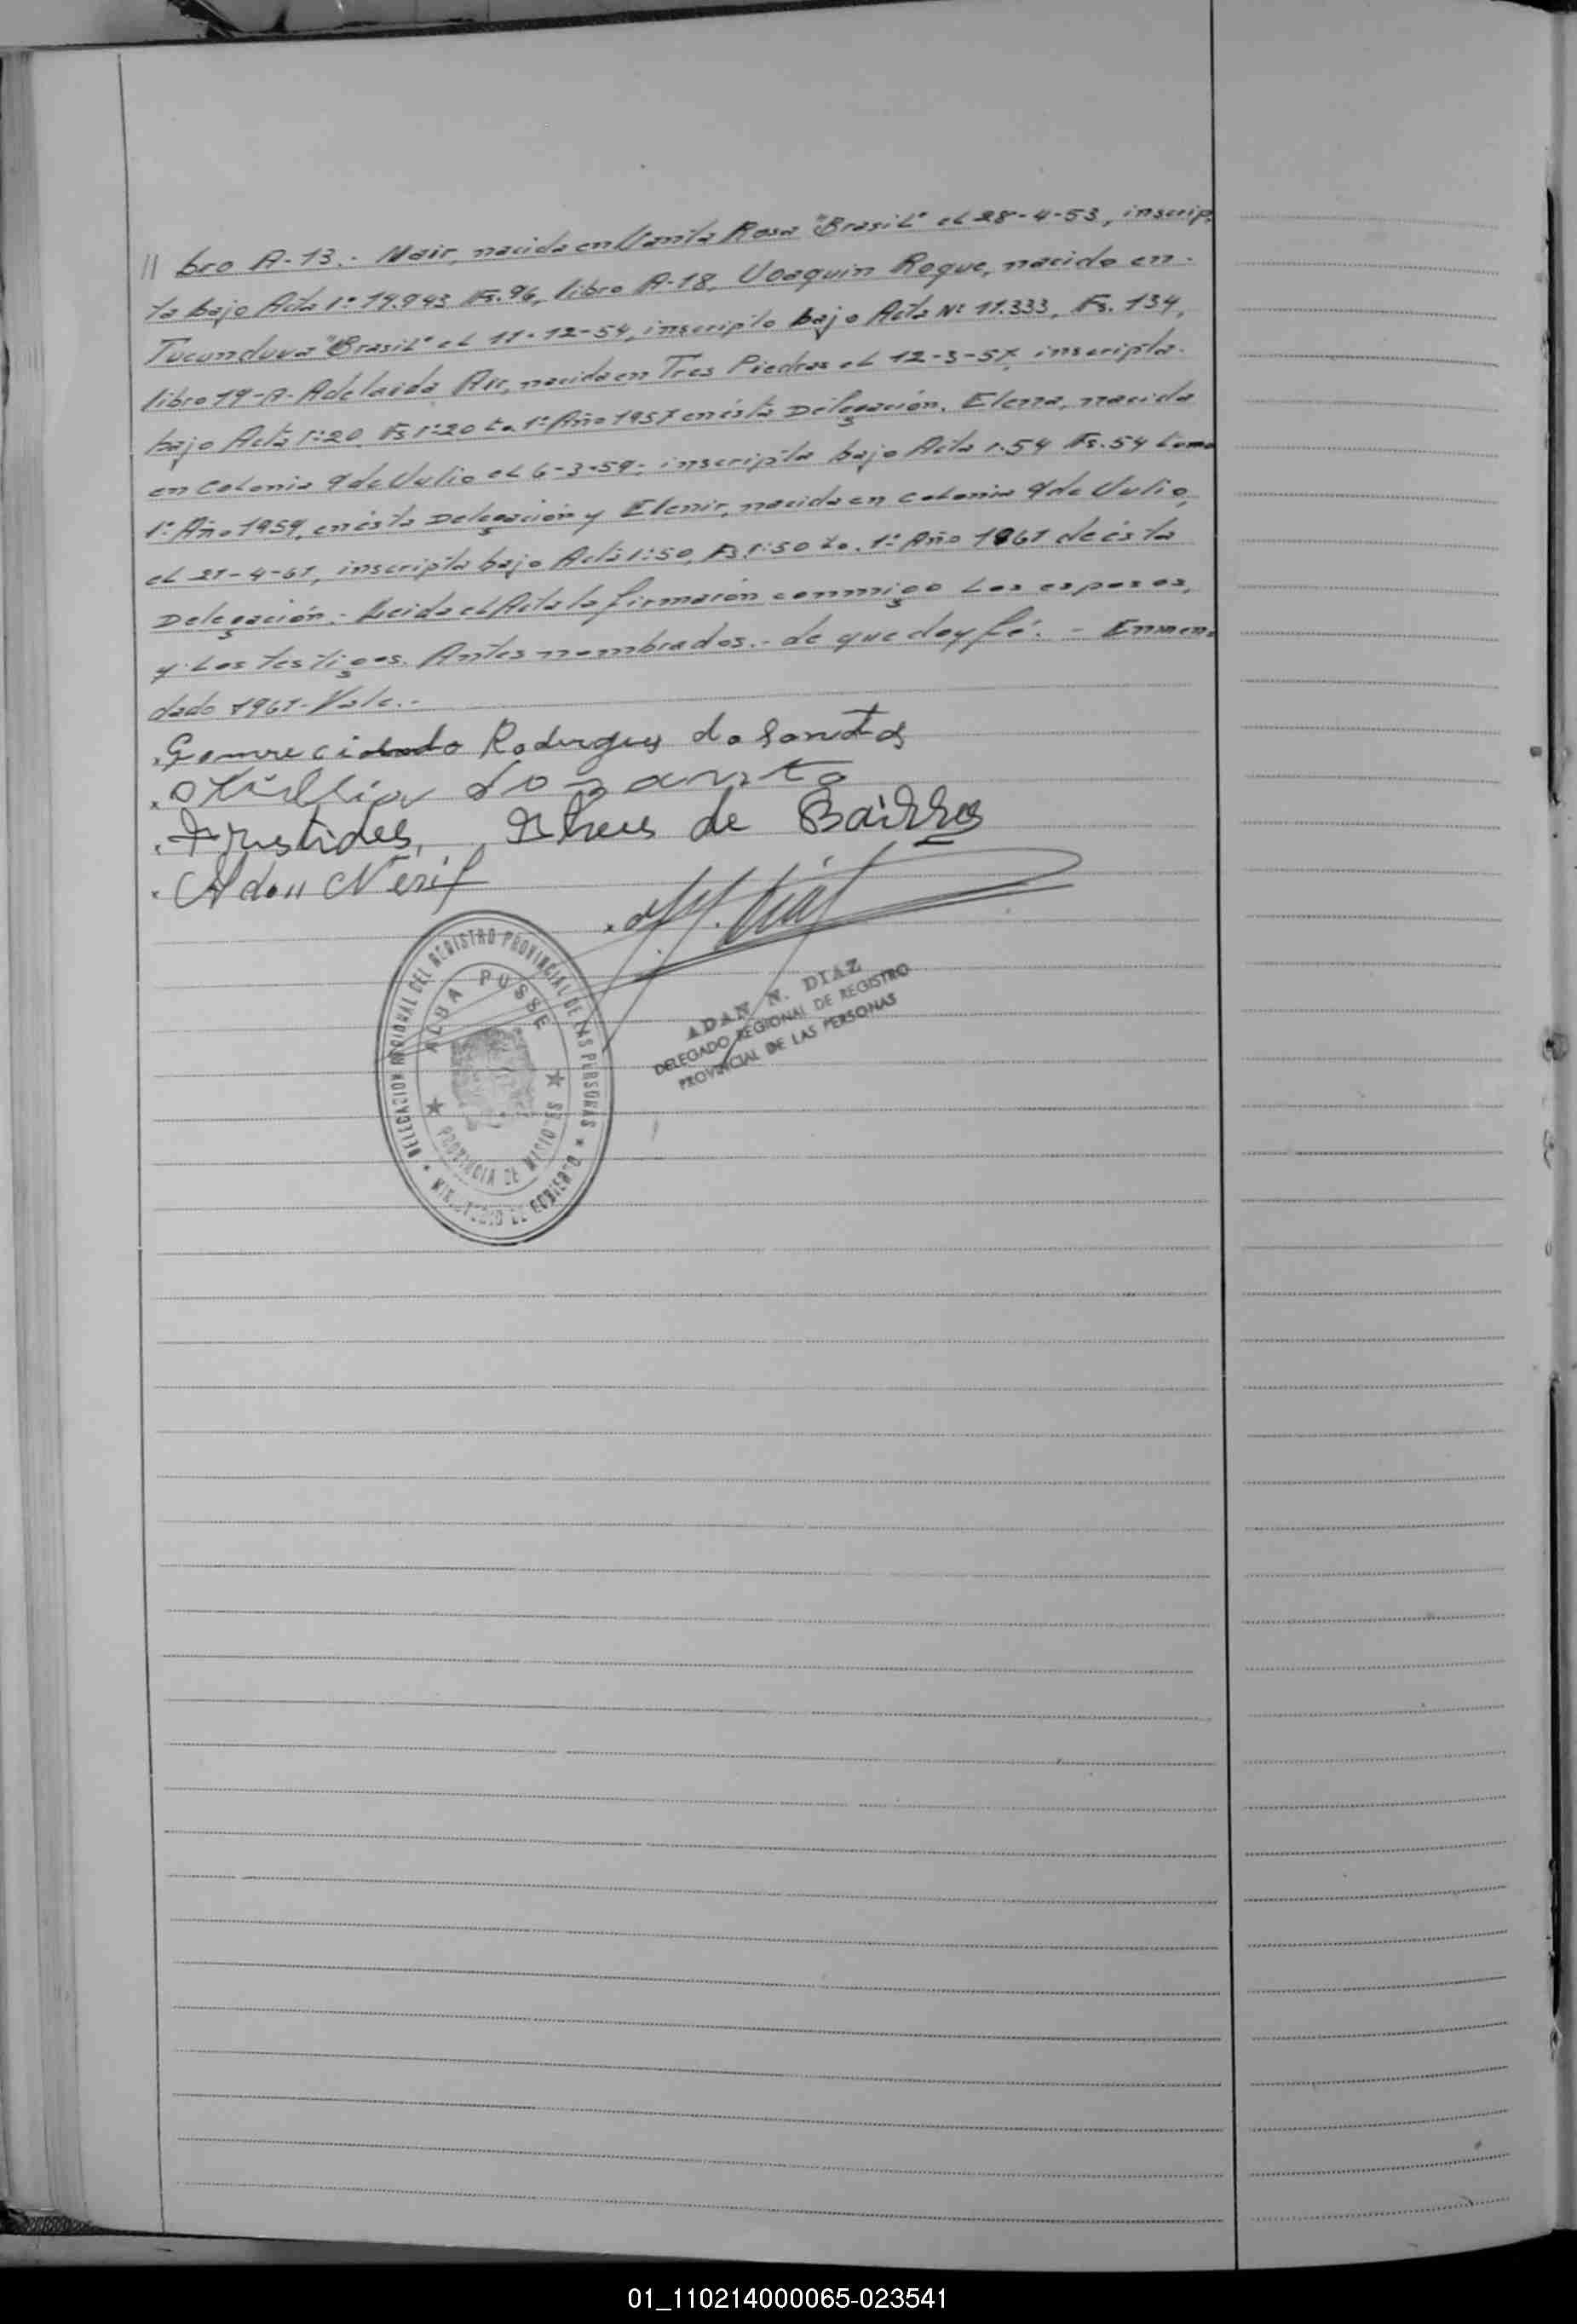 // bro A-13.- Nair, nacida en Santa Rosa "Brasil" el 28-4-53, inscrip-
ta bajo Acta Nº 14.943 Fs. 96, libro A-18, Joaquin Roque, nacido en-
Tucunduva "Brasil" el 11-12-54, inscripto bajo Acta Nº 11.333, Fs. 134,
libro 19-A- Adelaida nacida en Tres Piedras el 12-3-57, inscripta-
bajo Acta Nº 20 Fs Nº 20 to. 1º Año 1957 en ésta Delegación. Elena, nacida
en Colonia 9 de Julio el 6-3-59; inscripta bajo Acta Nº 54 Fs. 54 tomo
1º Año 1959, en ésta Delegación y Elenir, nacida en colonia 9 de Julio,
el 21-4-61, inscripta bajo Acta Nº 50, Fs Nº 50 to. 1º Año 1961 de ésta
Delegación.- Leida el Acta la firmarón conmigo los esposos,
y los testigos. Antes nombrados.- de que doy fé.- Enmen-
dado 1961-Vale.-
Rodrigues do Santos
do Santo
de Bairros
Adan
ADAN N. DIAZ
DELEGADO REGIONAL DE REGISTRO
PROVINCIAL DE LAS PERSONAS
DELEGACION REGIONAL DEL REGISTRO PROVINCIAL DE LAS PERSONAS ★ MINISTERIO DE GOBIERNO ★
ALBA POSSE
★ PROVINCIA DE MISIONES ★
01_110214000065-023541